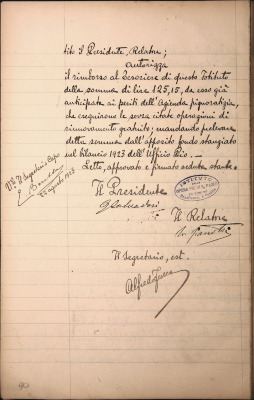 tito il Presidente, Relatore;
autorizza
il rimborso al Tesoriere di questo Istituto
della somma di lire 125,15, da esso già
anticipate ai periti dell'Azienda pignoratizia,
che eseguirono le sovra citate operazioni di
rinnovamento gratuito; mandando prelevare
detta somma dall'apposito fondo stanziato
sul bilancio 1923 dell'Ufficio Pio. —
Letto, approvato e firmato seduta stante.
Il Presidente
Il Relatore
Il Segretario, est.
Alfredo
V° Il Segretario Capo
agosto 1923
90